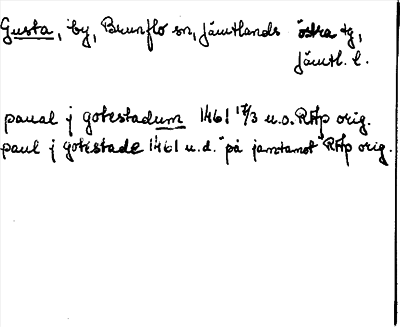 Gusta, by, Brunflo sn, Jämtlands östra tg,
Jämtl. l.
paual j gotestadum 1461 17/3 u.o. RAp orig.
paul j gotestade 1461 u.d. "på jamtamot" RAp orig.